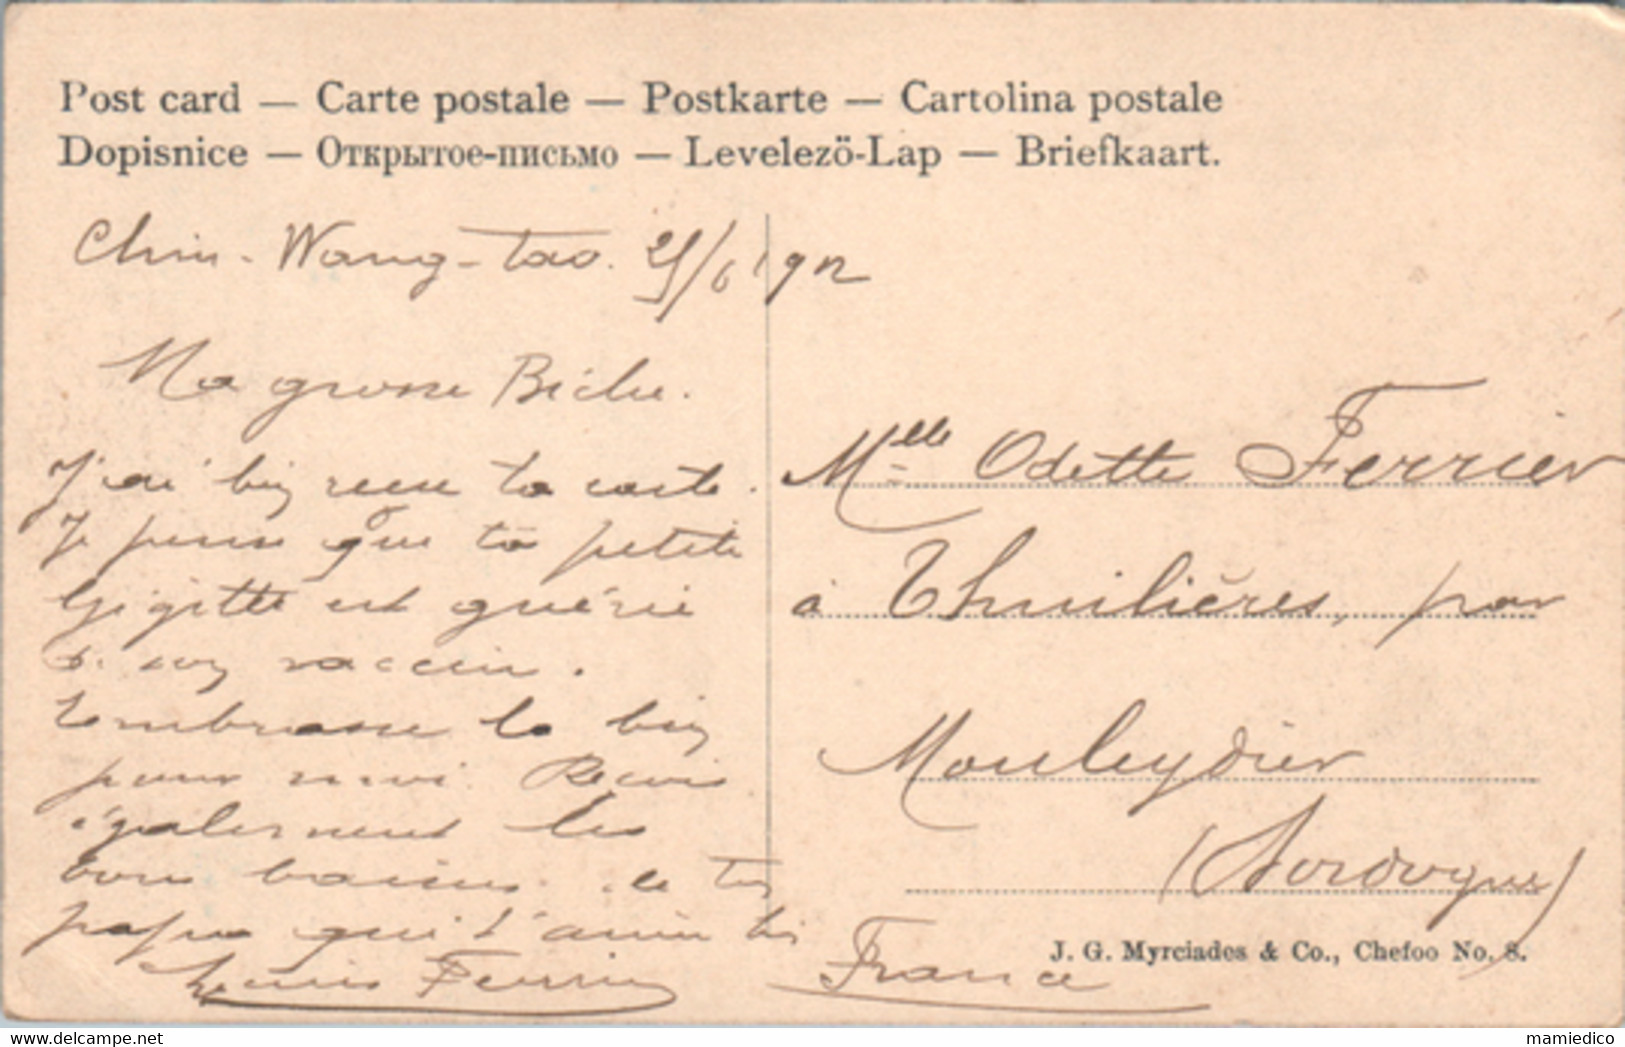 Post card — Carte postale — Postkarte — Cartolina postale
Dopisnice — Открытое-письмо — Levelezö-Lap — Briefkaart.
Chin-Wang-tao. 25/6 1912
Ma grosse Biche.
J'ai bien reçu ta carte.
Je pense que ta petite
Gigitte est guérie
de son vaccin.
Embrasse la bien
pour moi. Reçois
également les
bons baisers de ton
papa qui t'aime bien
Louis Ferrier
Mlle Odette Ferrier
à Thuilières, par
Mouleydier
(Dordogne)
France
J. G. Myrciades & Co., Chefoo No. 8.
delcampe.net
mamiedico